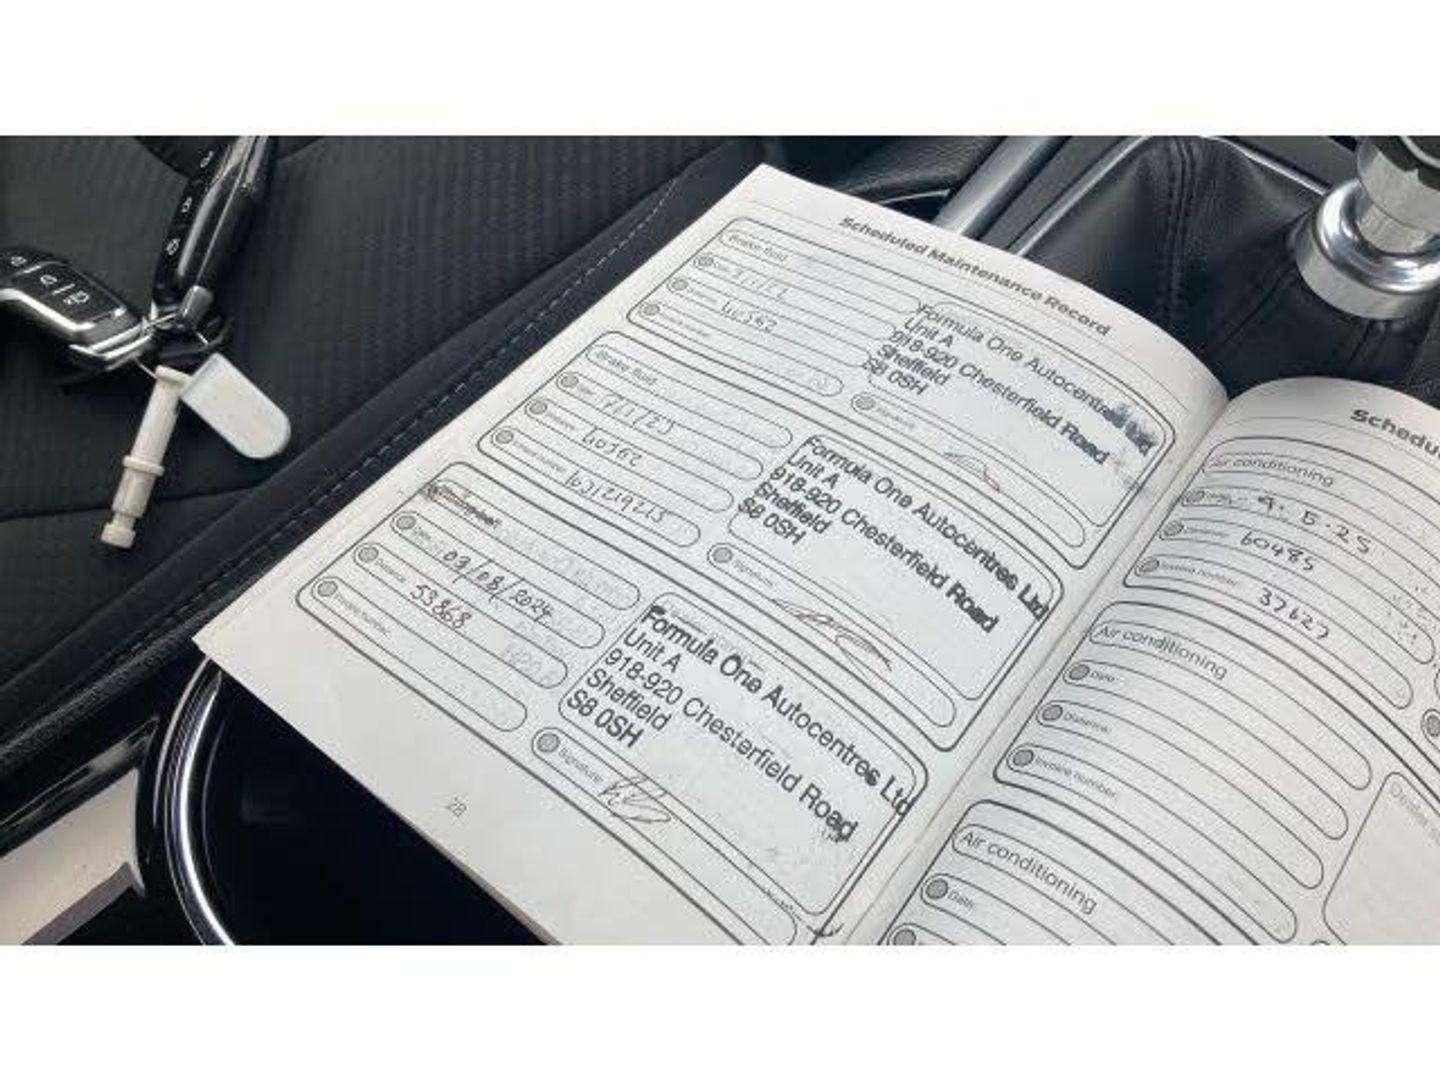 Scheduled Maintenance Record
Brake fluid
Date:
40562
Formula One Autocentres Ltd
Unit A
918-920 Chesterfield Road
Sheffield
S8 0SH
Signature:
Brake fluid
Date: 7/1/23
Distance: 40562
Invoice number: 163/219215
Formula One Autocentres Ltd
Unit A
918-920 Chesterfield Road
Sheffield
S8 0SH
Signature:
Date: 09/08/2024
Distance: 53868
Invoice number:
Formula One Autocentres Ltd
Unit A
918-920 Chesterfield Road
Sheffield
S8 0SH
Signature:
28
Schedu
Air conditioning
Date: 9.5.25
Distance: 60485
Invoice number: 37627
Air conditioning
Date:
Distance:
Invoice number:
Air conditioning
Date: